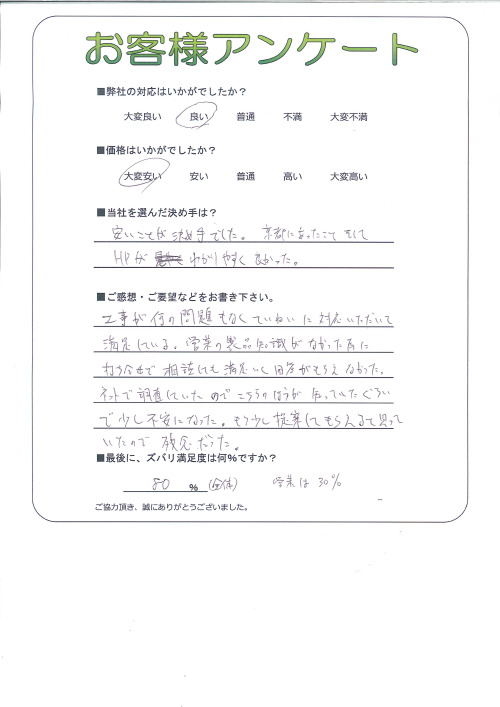 お客様アンケート
■弊社の対応はいかがでしたか？
大変良い 良い 普通 不満 大変不満
■価格はいかがでしたか？
大変安い 安い 普通 高い 大変高い
■当社を選んだ決め手は？
安いことが決め手でした。京都にあったこと そして
HPが わかりやすく 良かった。
■ご感想・ご要望などをお書き下さい。
工事が何の問題もなくていねいに対応いただいて
満足している。営業の製品知識がなかった為に
打ち合せで相談しても満足いく回答がもらえなかった。
ネットで調査していたのでこちらのほうが知っていたぐらい
で少し不安になった。もう少し提案してもらえると思って
いたので残念だった。
■最後に、ズバリ満足度は何％ですか？
80 ％ (全体) 営業は30％
ご協力頂き、誠にありがとうございました。